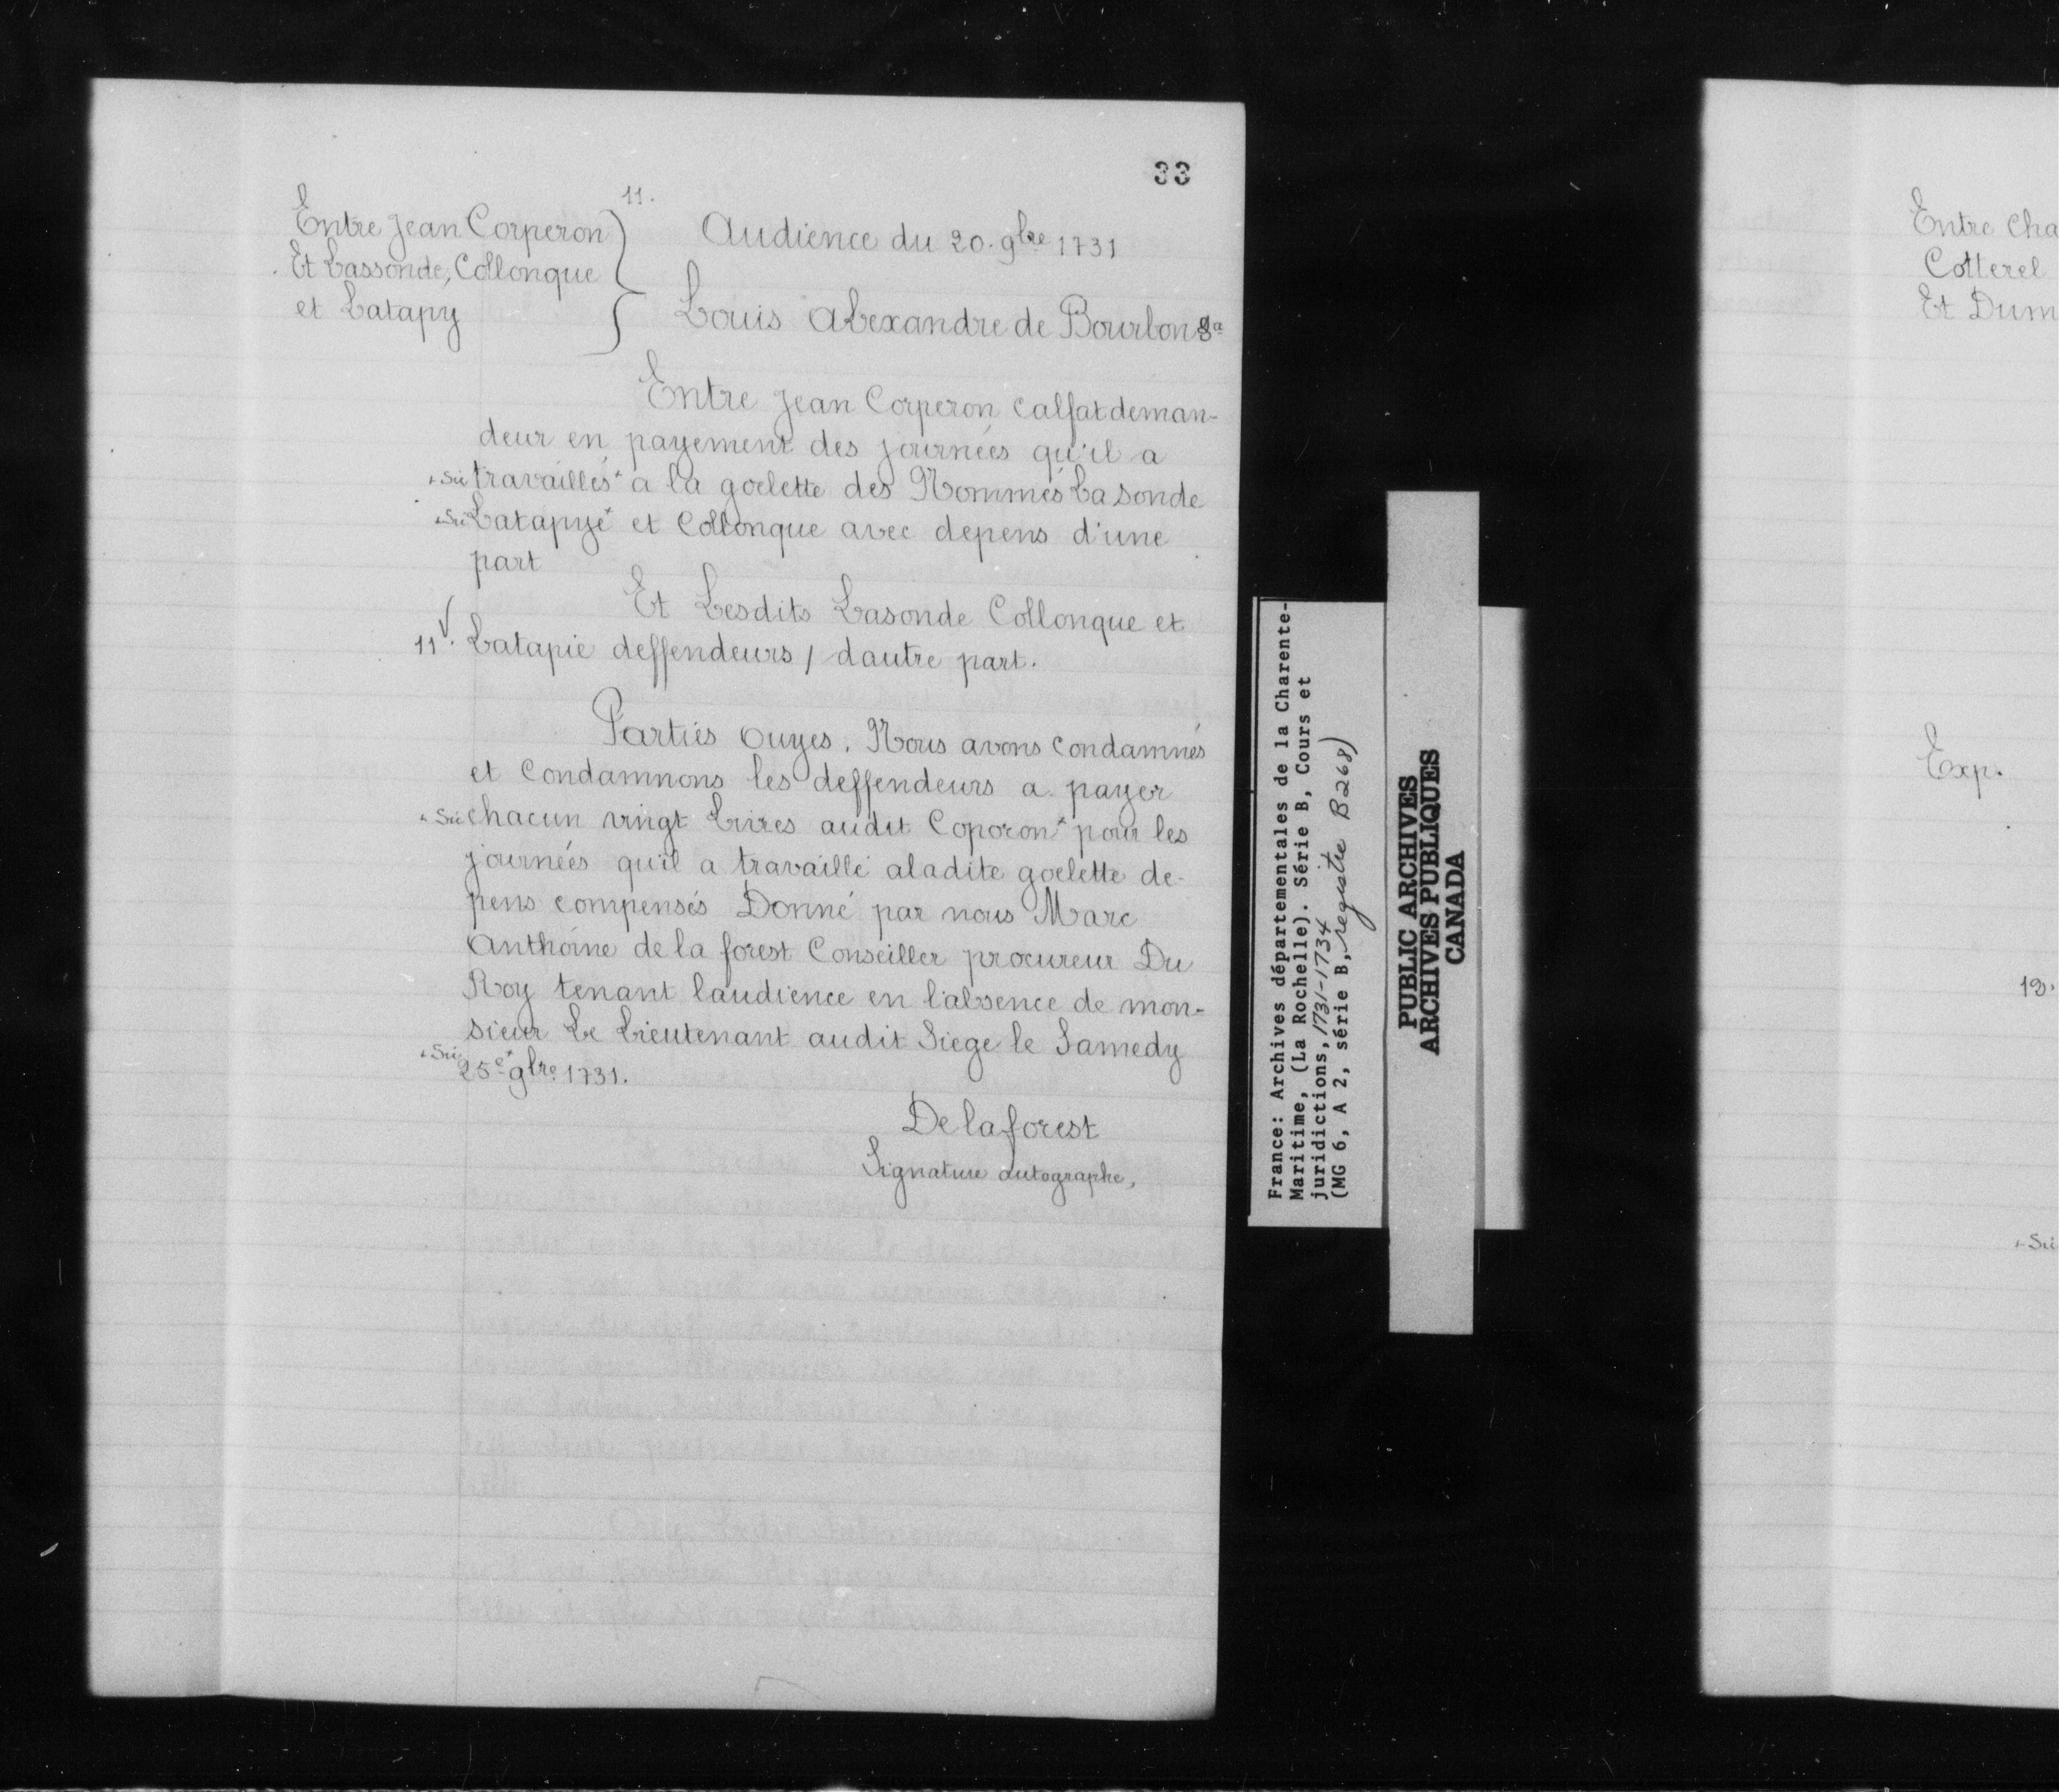 33
11.
Entre Jean Corperon
Et Lassonde, Collonque
et Latapy
Audience du 20. 9bre 1731
Louis Alexandre de Bourbon &a
Entre Jean Corperon calfat deman-
deur en payement des journées qu'il a
+ Sic travaillés+ a la goelette des Nommés La sonde
+ Sic Latapye+ et Collonque avec depens d'une
part
Et Lesdits Lasonde Collonque et
11v. Latapie deffendeurs / dautre part.
Parties ouyes. Nous avons condamnés
et Condamnons les deffendeurs a payer
+ Sic chacun vingt Livres audit Coporon+ pour les
journées qu'il a travaillé aladite goelette de-
pens compensés Donné par nous Marc
Anthoine de la forest Conseiller procureur Du
Roy tenant laudience en l'absence de mon-
sieur Le Lieutenant audit Siege le Samedy
+ Sic 25e+ 9bre 1731.
Delaforest
Signature autographe,
France: Archives départementales de la Charente-
Maritime, (La Rochelle). Série B, Cours et
juridictions, 1731-1734
(MG 6, A 2, série B, registre B268)
PUBLIC ARCHIVES
ARCHIVES PUBLIQUES
CANADA
Entre Cha
Cotterel
Et Dum
Exp.
12.
+ Sic